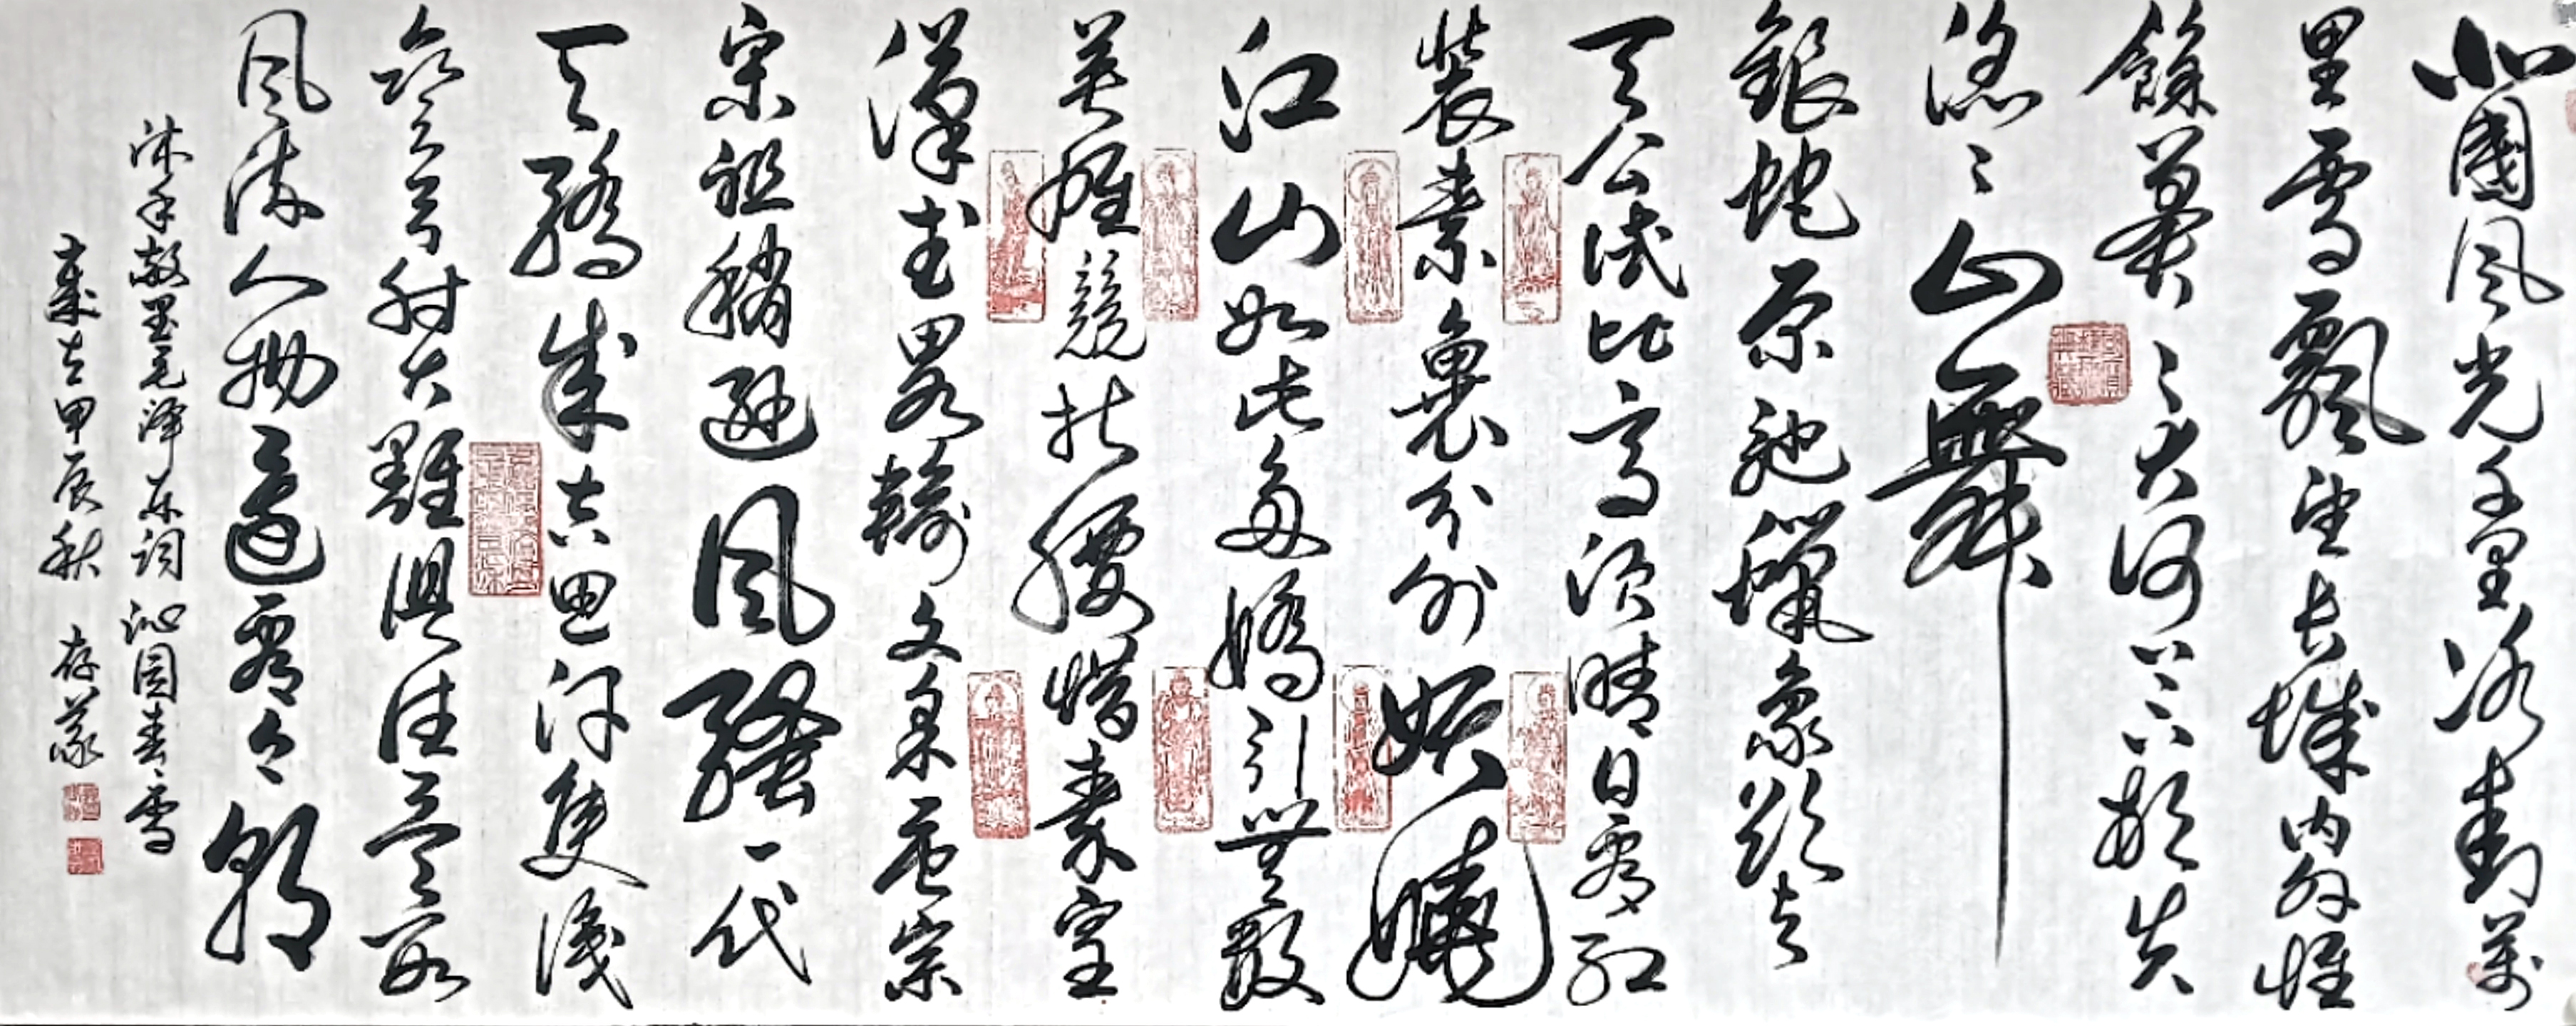 北國風光千里冰封萬
里雪飄望長城內外惟
餘莽〻大河上下頓失
滔〻山舞
銀蛇原馳蠟象欲與
天公試比高須晴日看紅
裝素裹分外妖嬈
江山如此多嬌引無數
英雄競折腰惜秦皇
漢武略輸文采唐宗
宋祖稍遜風騷一代
天驕成吉思汗隻識
彎弓射大雕俱往矣數
風流人物還看今朝
沐手敬墨毛泽东词 沁園春雪
歲在甲辰秋 存